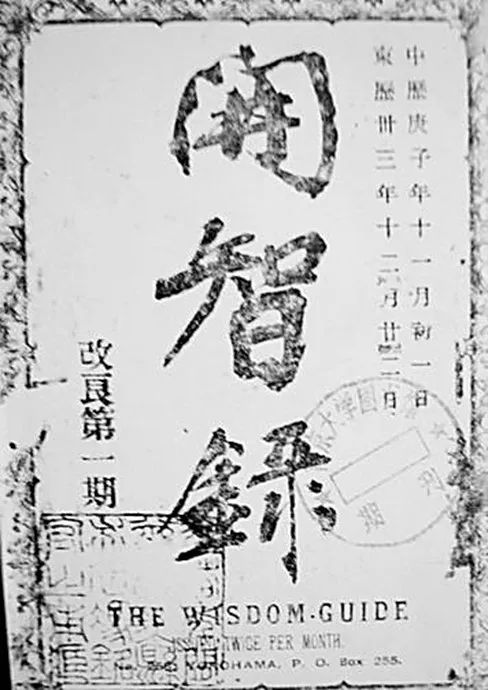 中歷庚子年十一月初一日
東歷卅三年十二月廿二日
開智錄
改良第一期
大学图
期刊
THE WISDOM-GUIDE
ISSUED TWICE PER MONTH.
YOKOHAMA, P. O. Box 255.